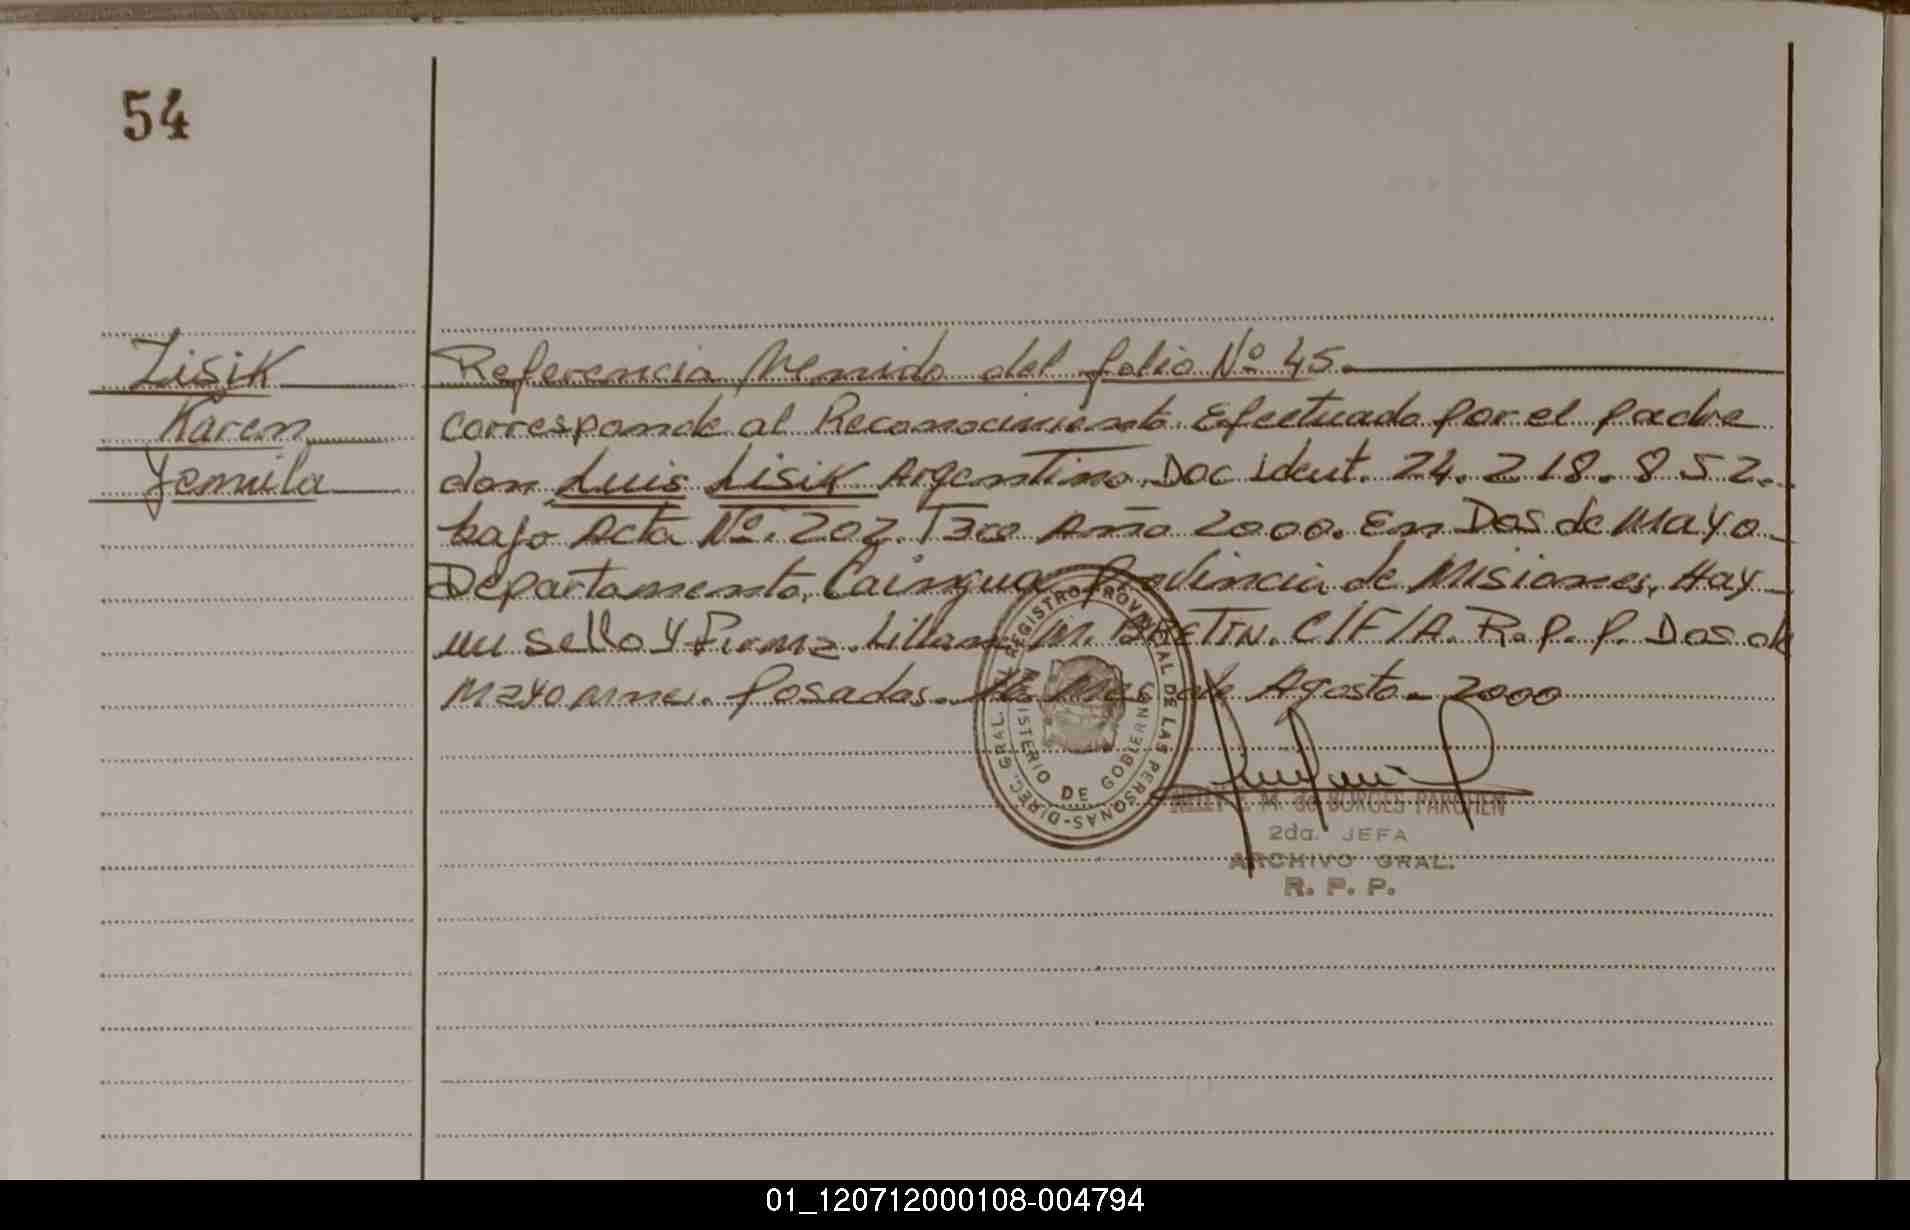 54
Lisik
Karen
Yemila
Referencia Venida del folio Nº 45.
corresponde al Reconocimiento Efectuado por el padre
don Luis Lisik Argentino. Doc ident. 24.218.852.
bajo Acta Nº. 202. Año 2000. En Dos de Mayo
Departamento, Cainguas Provincia de Misiones, Hay
un sello y Firma. Liliana M. C/F/A. R.P.P. Dos de
Mayo Mnes. Posadas. de Agosto - 2000
DIREC. GRAL. REGISTRO PROVINCIAL DE LAS PERSONAS
MINISTERIO DE GOBIERNO
M. de BORGES PARCHEN
2da. JEFA
ARCHIVO GRAL.
R. P. P.
01_120712000108-004794